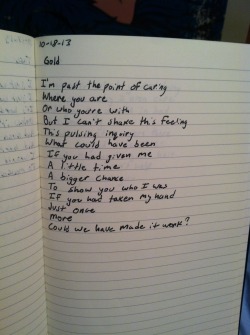 10-18-13
Gold
I'm past the point of caring
Where you are
Or who you're with
But I can't shake this feeling
This pulsing inquiry
What could have been
If you had given me
A little time
A bigger chance
To show you who I was
If you had taken my hand
Just once
More
Could we have made it work?